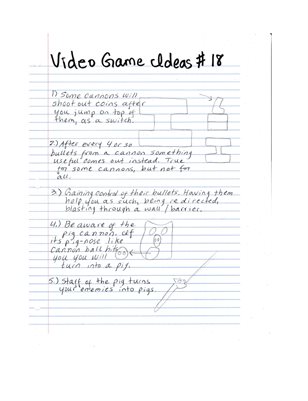 Video Game Ideas # 18
1) Some cannons will
shoot out coins after
you jump on top of
them, as a switch.
2.) After every 4 or so
bullets from a cannon something
useful comes out instead. True
for some cannons, but not for
all.
3.) Gaining control of their bullets. Having them
help you as such, being re directed,
blasting through a wall / barrier.
4.) Be aware of the
pig cannon. If
its pig-nose like
cannon ball hits
you you will
turn into a pig.
5.) Staff of the pig turns
your enemies into pigs.